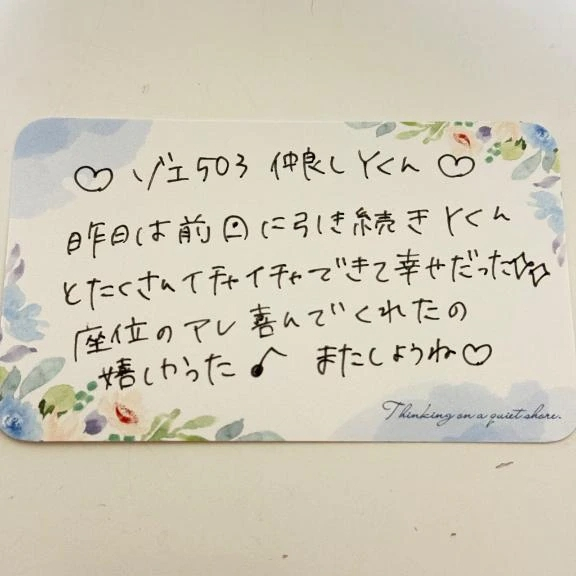 ♡ ゾエ503 仲良しYくん ♡
昨日は前回に引き続きYくん
とたくさんイチャイチャできて幸せだった☆☆
座位のアレ喜んでくれたの
嬉しかった♪ またしようね♡
Thinking on a quiet shore.